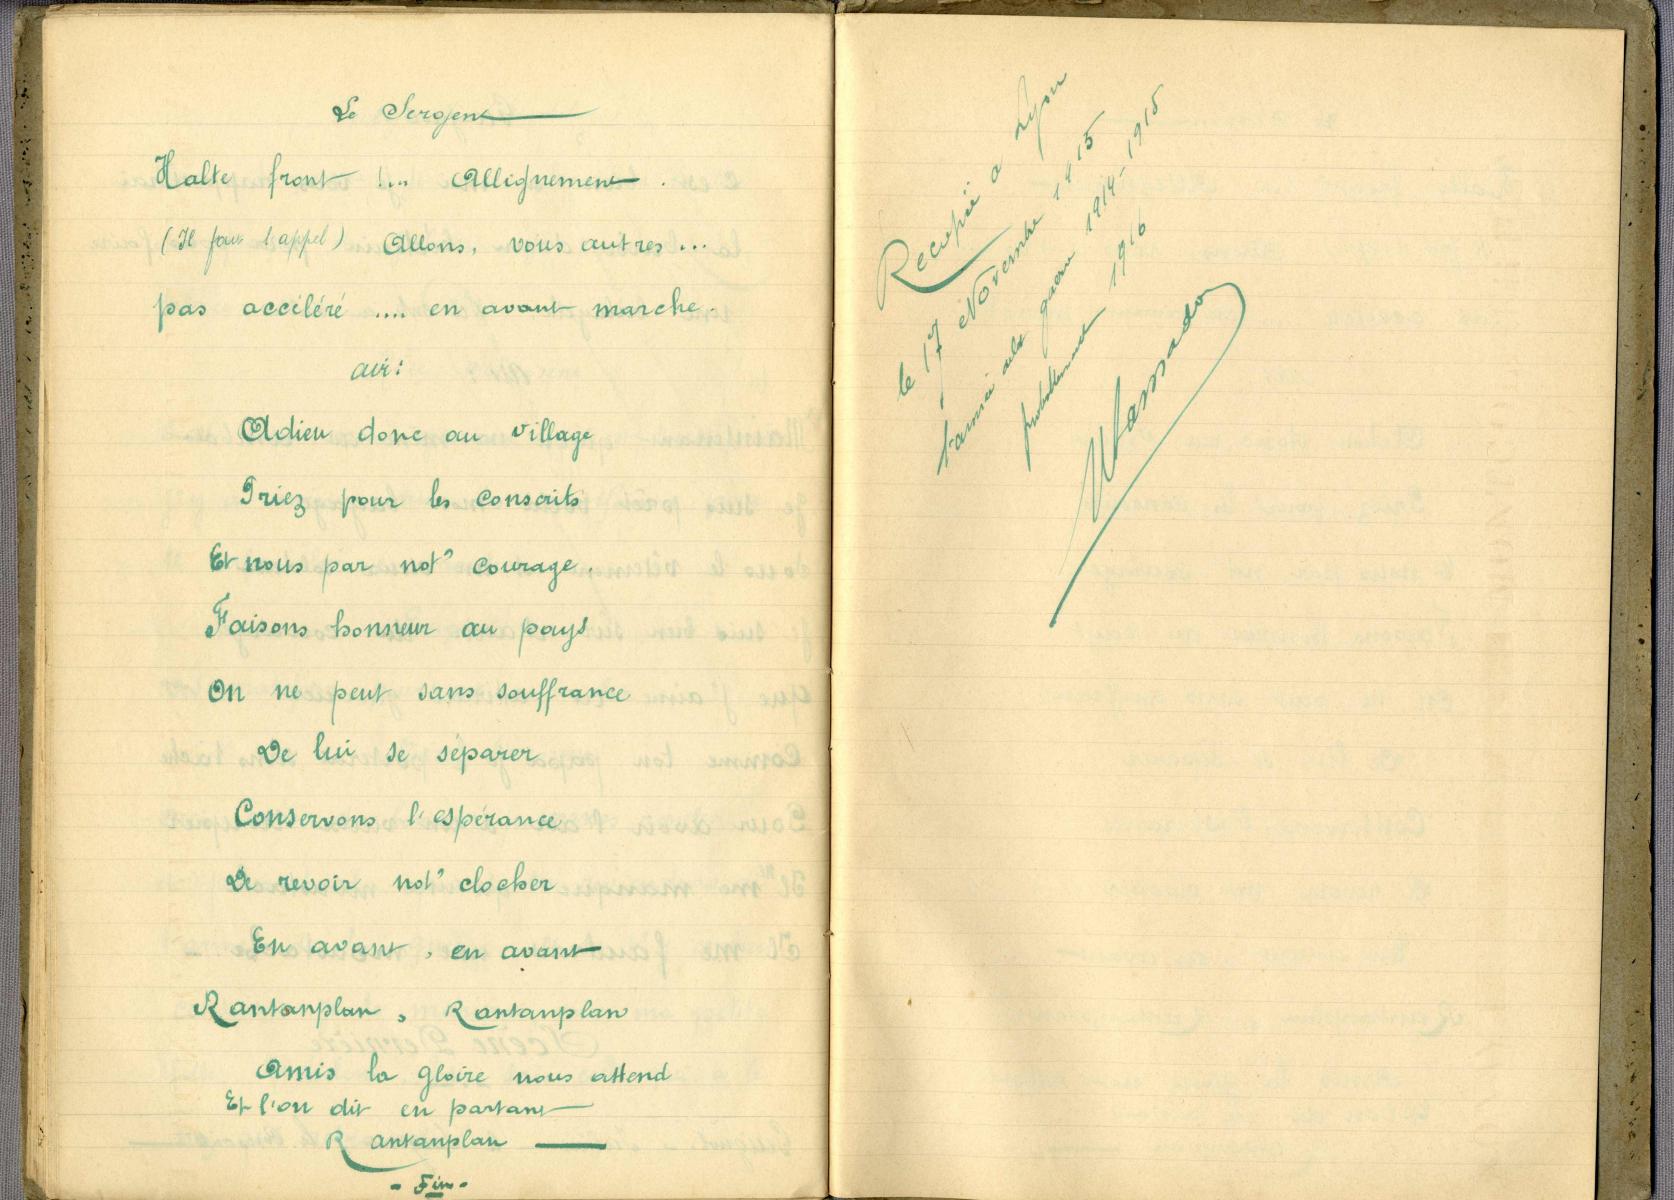 Le Sergent
Halte front !... Allignement.
(Il fait l'appel) Allons, vous autres...
pas accéléré .... en avant marche.
air:
Adieu donc au village
Priez pour les conscrits
Et nous par not' courage.
Faisons honneur au pays
On ne peut sans souffrance
De lui se séparer
Conservons l'espérance
De revoir not' clocher
En avant, en avant
Rantanplan, Rantanplan
Amis la gloire nous attend
Et l'on dit en partant
Rantanplan
- Fin -
Recopié a Lyon
le 17 Novembre 1915
guerre 1914-1915
1916